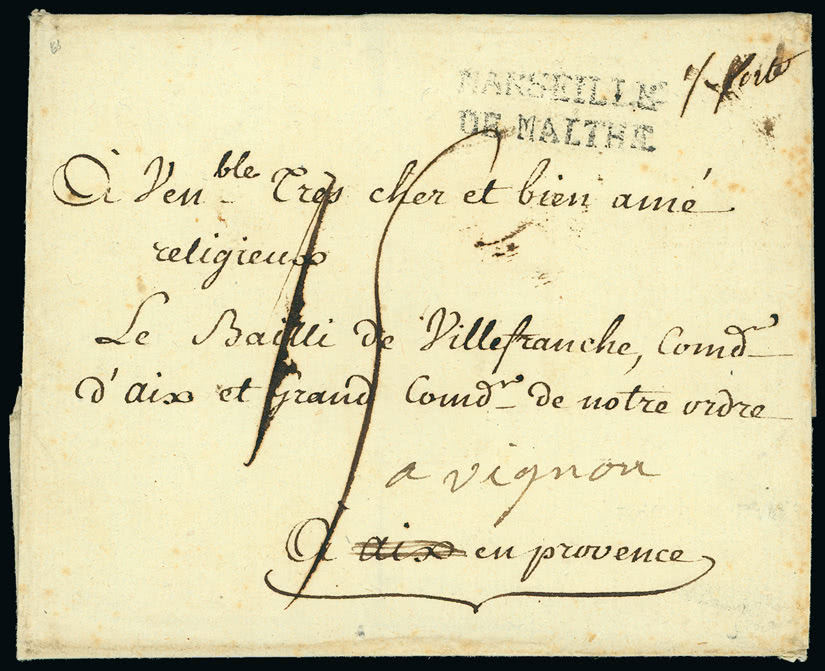 MARSEILLE
DE MALTHE
À Ven.ble Tres cher et bien amé
religieux
Le Bailli de Villefranche, Comdr
d'aix et Grand Comdr de notre ordre
avignon
À aix en provence
15